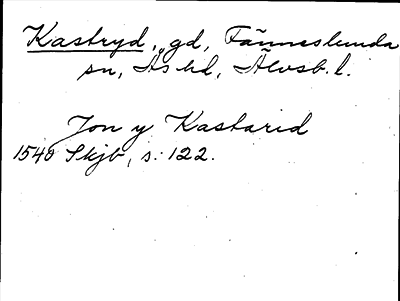 Kastryd, gd, Tämneslunda
sn, Ås hd, Älvsb. l.
Jon y Kastarid
1540 Skjb, s. 122.